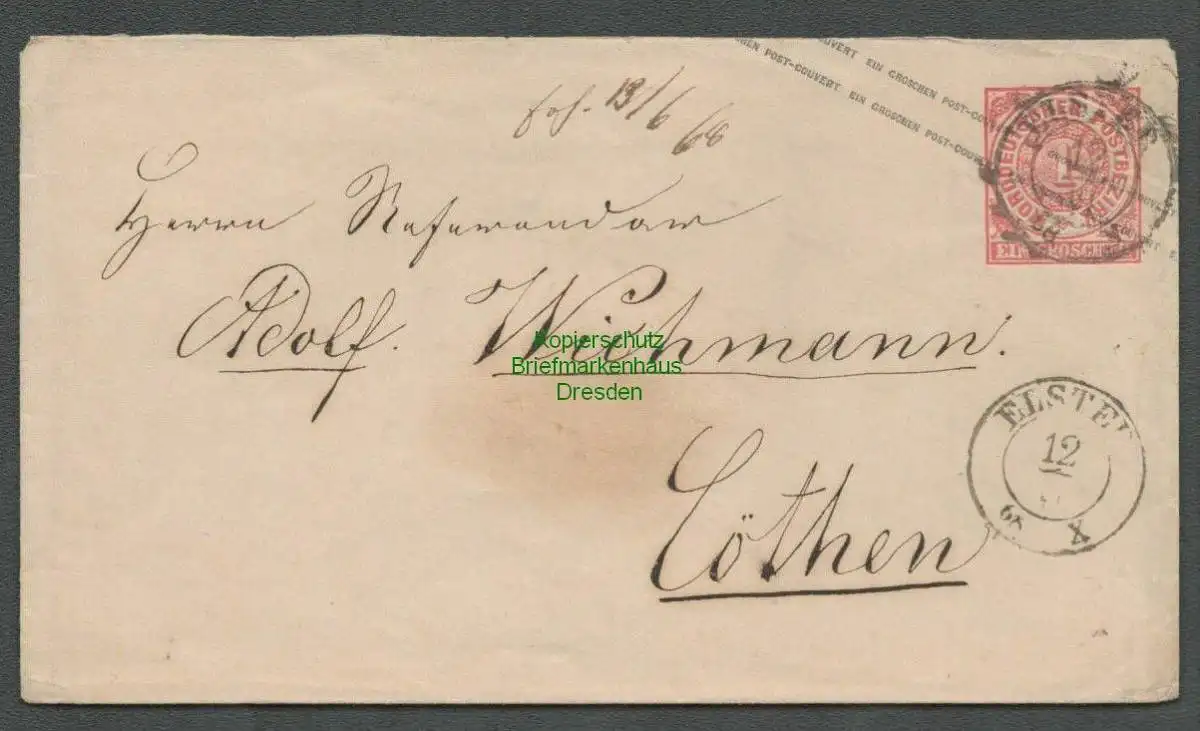 POST-COUVERT EIN GROSCHEN POST-COUVERT
POST-COUVERT EIN GROSCHEN POST-COUVERT
13/6/68
NORDDEUTSCHER POSTBEZIRK
1
EIN GROSCHEN
Herrn Referendar
Adolf. Wichmann.
Cöthen
ELSTE
12
68 X
Kopierschutz
Briefmarkenhaus
Dresden